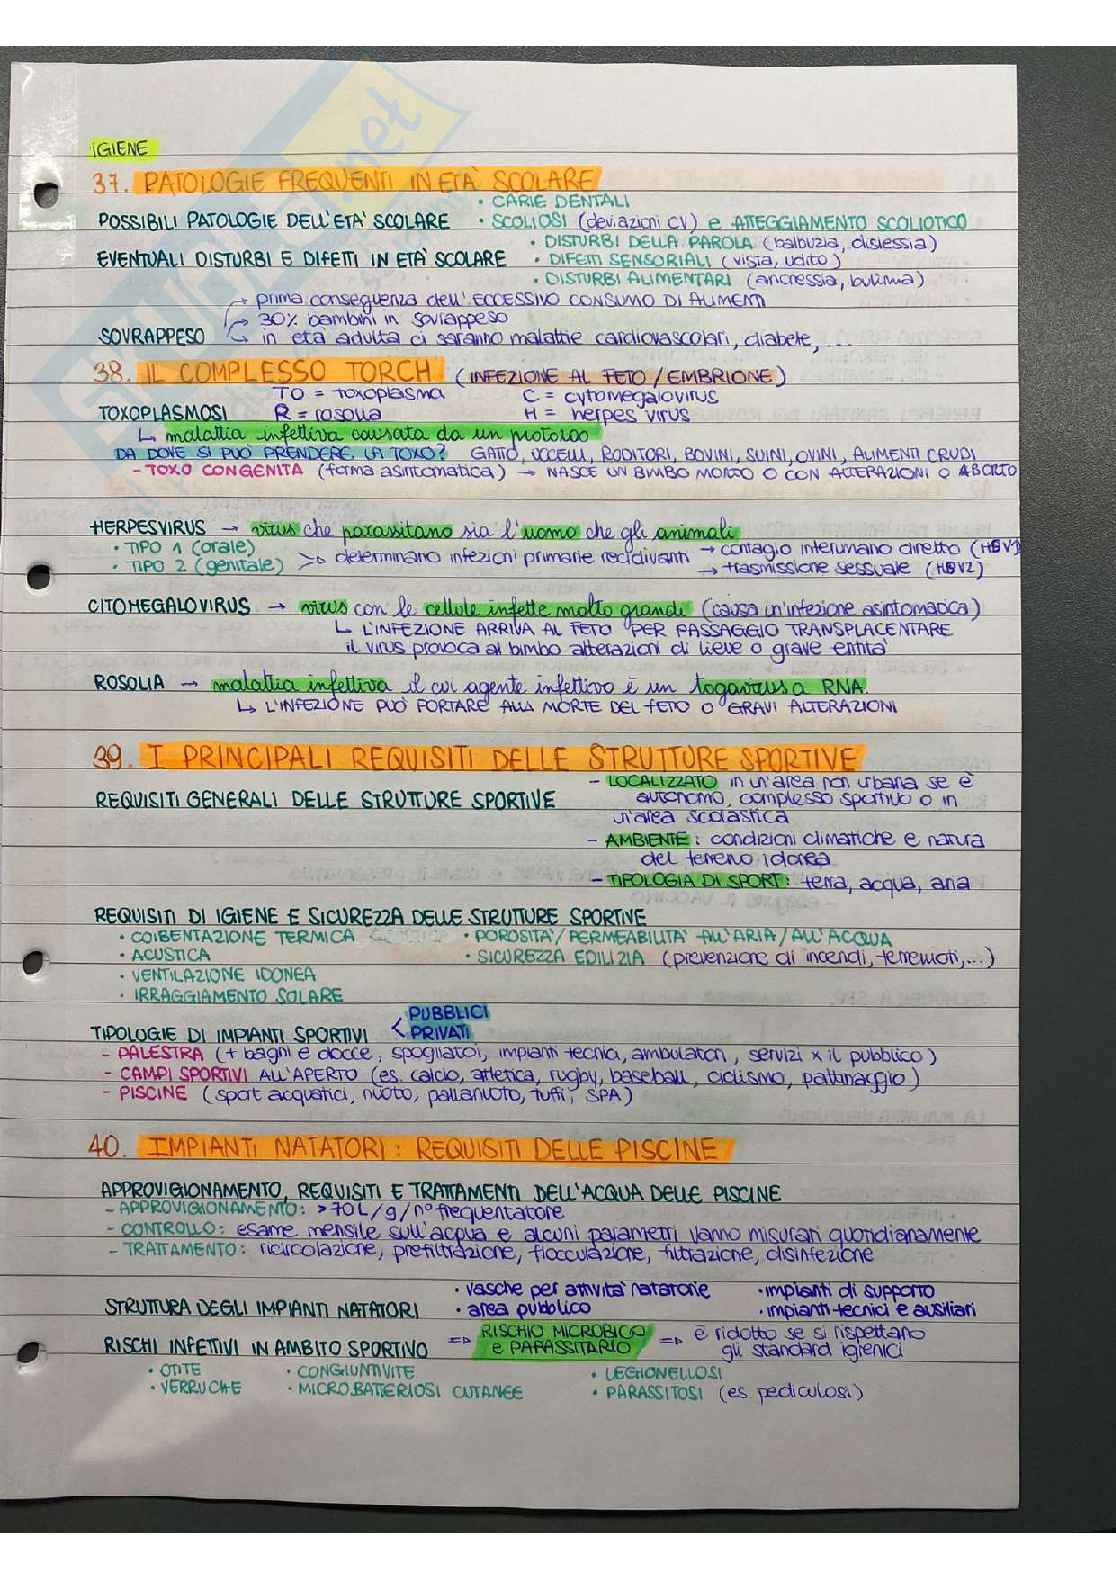 IGIENE
37. PATOLOGIE FREQUENTI IN ETÀ SCOLARE
POSSIBILI PATOLOGIE DELL'ETÀ SCOLARE
• CARIE DENTALI
• SCOLIOSI (deviazioni CV) e ATTEGGIAMENTO SCOLIOTICO
EVENTUALI DISTURBI E DIFETTI IN ETÀ SCOLARE
• DISTURBI DELLA PAROLA (balbuzia, dislessia)
• DIFETTI SENSORIALI (vista, udito)
• DISTURBI ALIMENTARI (anoressia, bulimia)
SOVRAPPESO
→ prima conseguenza dell'ECCESSIVO CONSUMO DI ALIMENTI
→ 30% bambini in sovrappeso
→ in età adulta ci saranno malattie cardiovascolari, diabete, ...
38. IL COMPLESSO TORCH (INFEZIONE AL FETO / EMBRIONE)
TO = toxoplasma C = cytomegalovirus
R = rosolia H = herpes virus
TOXOPLASMOSI
↳ malattia infettiva causata da un protozoo
DA DOVE SI PUÒ PRENDERE LA TOXO? GATTO, UCCELLI, RODITORI, BOVINI, SUINI, OVINI, ALIMENTI CRUDI
- TOXO CONGENITA (forma asintomatica) → NASCE UN BIMBO MORTO O CON ALTERAZIONI O ABORTO
HERPESVIRUS → virus che parassitano sia l'uomo che gli animali
• TIPO 1 (orale)
• TIPO 2 (genitale)
> determinano infezioni primarie recidivanti
→ contagio interumano diretto (HSV1)
→ trasmissione sessuale (HSV2)
CITOMEGALOVIRUS → virus con le cellule infette molto grandi (causa un'infezione asintomatica)
↳ L'INFEZIONE ARRIVA AL FETO PER PASSAGGIO TRANSPLACENTARE
il virus provoca al bimbo alterazioni di lieve o grave entità
ROSOLIA → malattia infettiva il cui agente infettivo è un togavirus a RNA.
↳ L'INFEZIONE PUÒ PORTARE ALLA MORTE DEL FETO O GRAVI ALTERAZIONI
39. I PRINCIPALI REQUISITI DELLE STRUTTURE SPORTIVE
REQUISITI GENERALI DELLE STRUTTURE SPORTIVE
- LOCALIZZATO in un'area non urbana se è
autonomo, complesso sportivo o in
un'area scolastica
- AMBIENTE: condizioni climatiche e natura
del terreno idonea
- TIPOLOGIA DI SPORT: terra, acqua, aria
REQUISITI DI IGIENE E SICUREZZA DELLE STRUTTURE SPORTIVE
• COIBENTAZIONE TERMICA • POROSITÀ/PERMEABILITÀ ALL'ARIA/ALL'ACQUA
• ACUSTICA • SICUREZZA EDILIZIA (prevenzione di incendi, terremoti,...)
• VENTILAZIONE IDONEA
• IRRAGGIAMENTO SOLARE
TIPOLOGIE DI IMPIANTI SPORTIVI < PUBBLICI
PRIVATI
- PALESTRA (+ bagni e docce, spogliatoi, impianti tecnici, ambulatori, servizi x il pubblico)
- CAMPI SPORTIVI ALL'APERTO (es. calcio, atletica, rugby, baseball, ciclismo, pattinaggio)
- PISCINE (sport acquatici, nuoto, pallanuoto, tuffi, SPA)
40. IMPIANTI NATATORI: REQUISITI DELLE PISCINE
APPROVIGIONAMENTO, REQUISITI E TRATTAMENTI DELL'ACQUA DELLE PISCINE
- APPROVIGIONAMENTO: >70L/g/n° frequentatore
- CONTROLLO: esame mensile sull'acqua e alcuni parametri vanno misurati quotidianamente
- TRATTAMENTO: ricircolazione, prefiltrazione, flocculazione, filtrazione, disinfezione
STRUTTURA DEGLI IMPIANTI NATATORI
• vasche per attività natatorie • impianti di supporto
• area pubblico • impianti tecnici e ausiliari
RISCHI INFETTIVI IN AMBITO SPORTIVO ⇒ RISCHIO MICROBICO
e PARASSITARIO ⇒ è ridotto se si rispettano
gli standard igienici
• OTITE • CONGIUNTIVITE • LEGIONELLOSI
• VERRUCHE • MICROBATTERIOSI CUTANEE • PARASSITOSI (es. pediculosi)